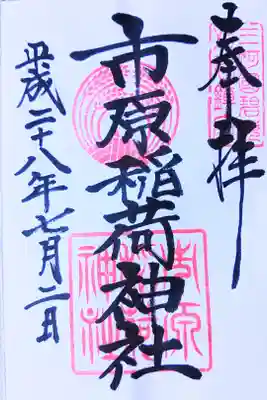 奉拝
市原稲荷神社
平成二十八年七月二日
市原稲荷神社